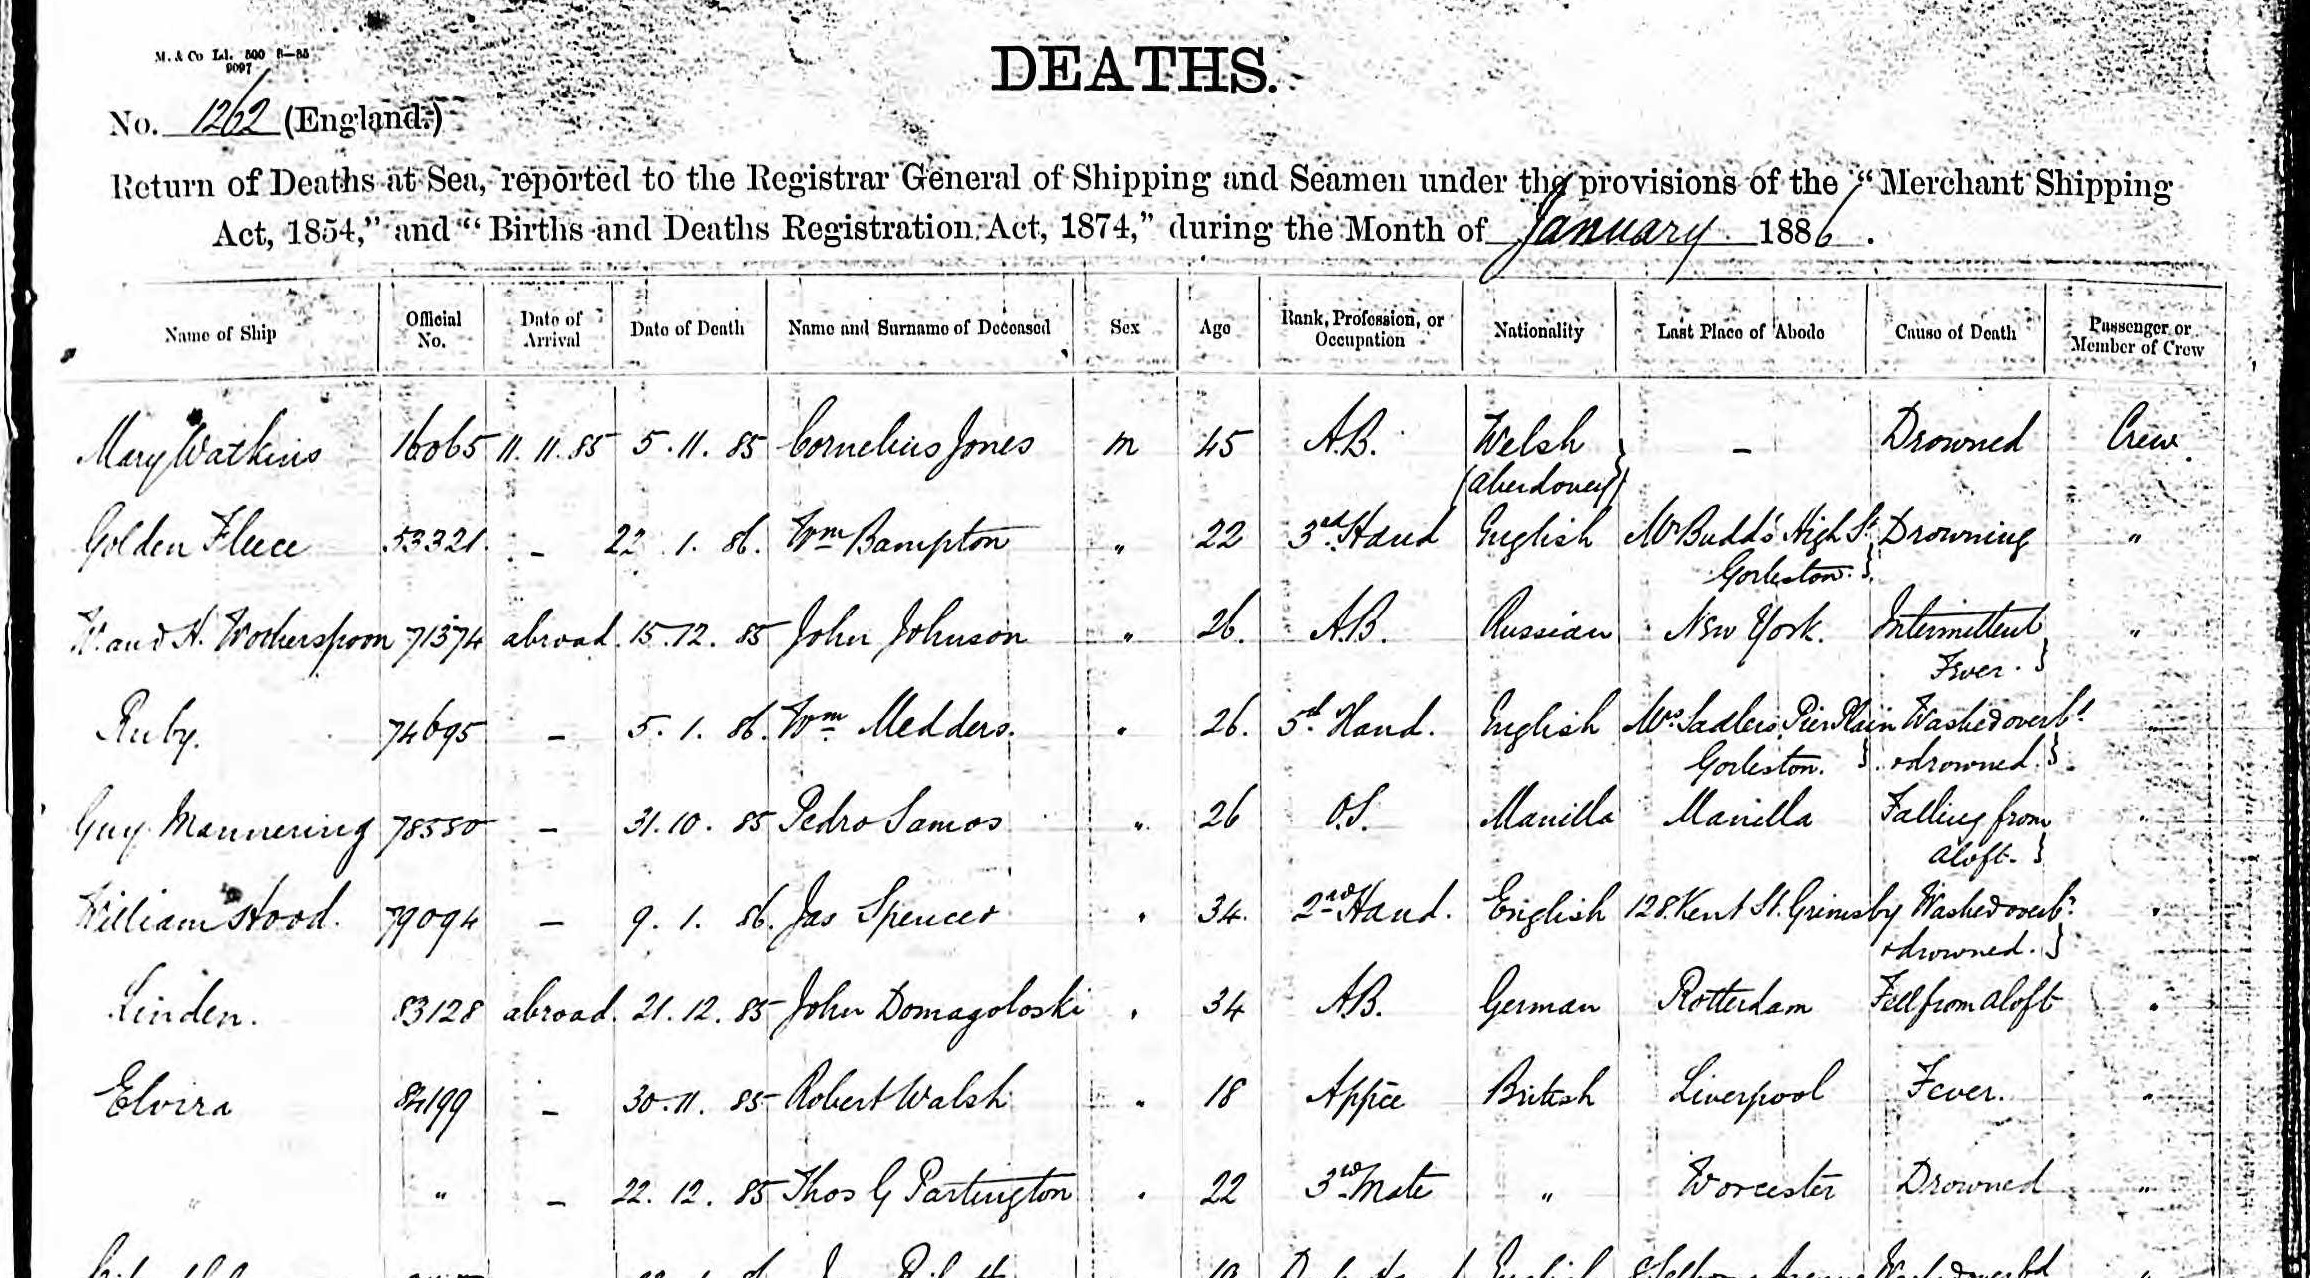 M. & Co Ld. 500 6—85
9097
DEATHS.
No. 1262 (England.)
Return of Deaths at Sea, reported to the Registrar General of Shipping and Seamen under the provisions of the "Merchant Shipping
Act, 1854," and "Births and Deaths Registration Act, 1874," during the Month of January 1886.
Name of Ship Official No. Date of Arrival Date of Death Name and Surname of Deceased Sex Age Rank, Profession, or Occupation Nationality Last Place of Abode Cause of Death Passenger or Member of Crew
Mary Watkins 16065 11.11.85 5.11.85 Cornelius Jones m 45 A.B. Welsh (Aberdovey) – Drowned Crew
Golden Fleece 53321 – 22.1.86. Wm Bampton " 22 3rd Hand English Mr Budds High St Gorleston. Drowning "
W. and H. Wotherspoon 71374 abroad. 15.12.85 John Johnson " 26. A.B. Russian New York. Intermittent Fever. "
Ruby. 74695 – 5.1.86. Wm Medders. " 26. 3d Hand. English Mrs Sadlers Pier Plain Gorleston. Washed overbd & drowned. "
Guy Mannering 78550 – 31.10.85 Pedro Samos " 26 O.S. Manilla Manilla Falling from aloft. "
William Hood. 79094 – 9.1.86. Jas Spencer " 34. 2nd Hand. English 128 Kent St. Grimsby Washed overbd & drowned. "
Linden. 83128 abroad. 21.12.85 John Domagoloski " 34 AB. German Rotterdam Fell from aloft "
Elvira 84199 – 30.11.85 Robert Walsh " 18 Appce British Liverpool Fever. "
" " – 22.12.85 Thos G Partington " 22 3rd Mate " Worcester Drowned "